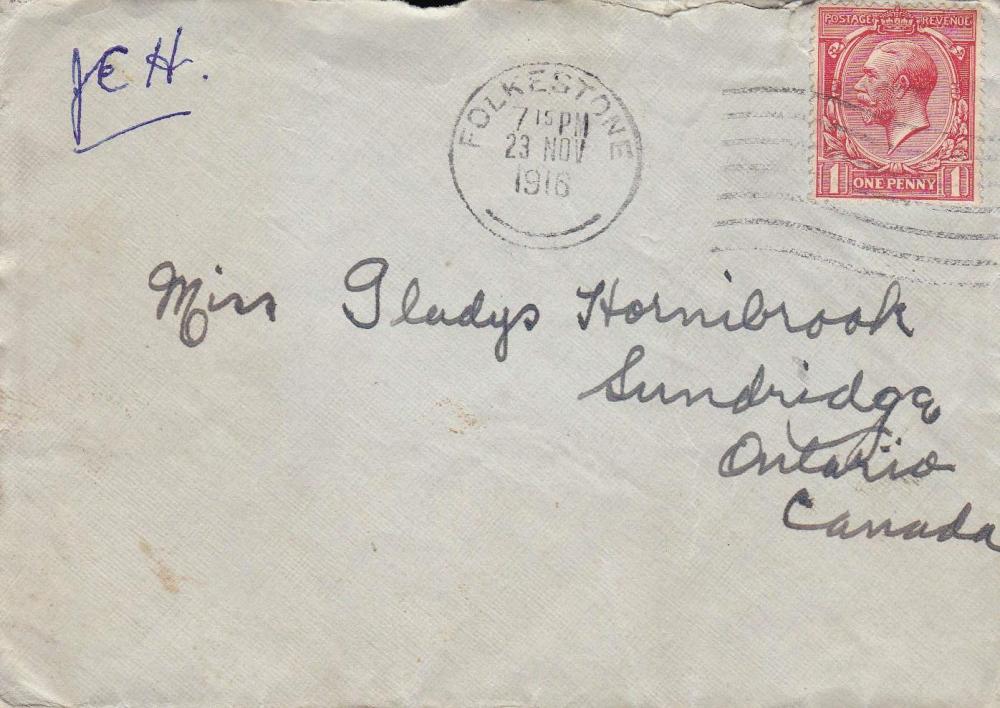 JEH.
FOLKESTONE
7 15 PM
23 NOV
1916
POSTAGE REVENUE
1 ONE PENNY 1
Miss Gladys Hornibrook
Sundridge
Ontario
Canada